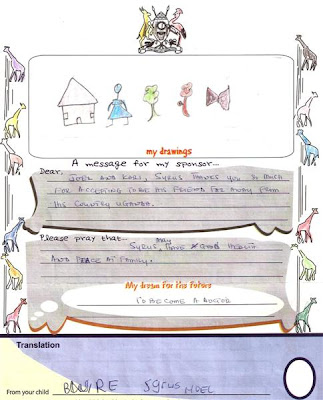 my drawings
A message for my sponsor...
Dear,
JOEL AND KARI, SYRUS THANKS YOU SO MUCH
FOR ACCEPTING TO BE HIS FRIEND FAR AWAY FROM
HIS COUNTRY UGANDA.
Please pray that...
SYRUS, MAY HAVE GOOD HEALTH
AND PEACE AT FAMILY.
My dream for the future
TO BECOME A DOCTOR
Translation
From your child
SYRUS